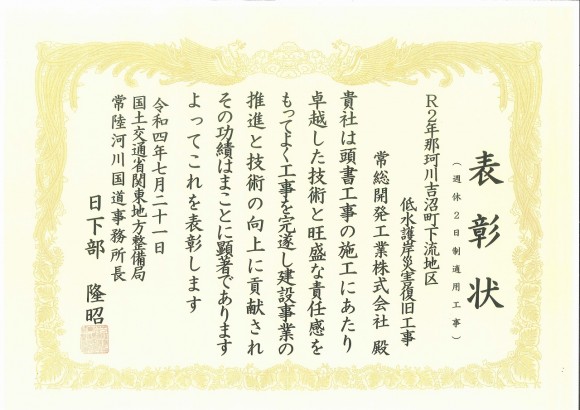 表彰状
(週休2日制適用工事)
R2年那珂川吉沼町下流地区
低水護岸災害復旧工事
常総開発工業株式会社 殿
貴社は頭書工事の施工にあたり
卓越した技術と旺盛な責任感を
もってよく工事を完遂し建設事業の
推進と技術の向上に貢献され
その功績はまことに顕著であります
よってこれを表彰します
令和四年七月二十一日
国土交通省関東地方整備局
常陸河川国道事務所長
日下部 隆昭